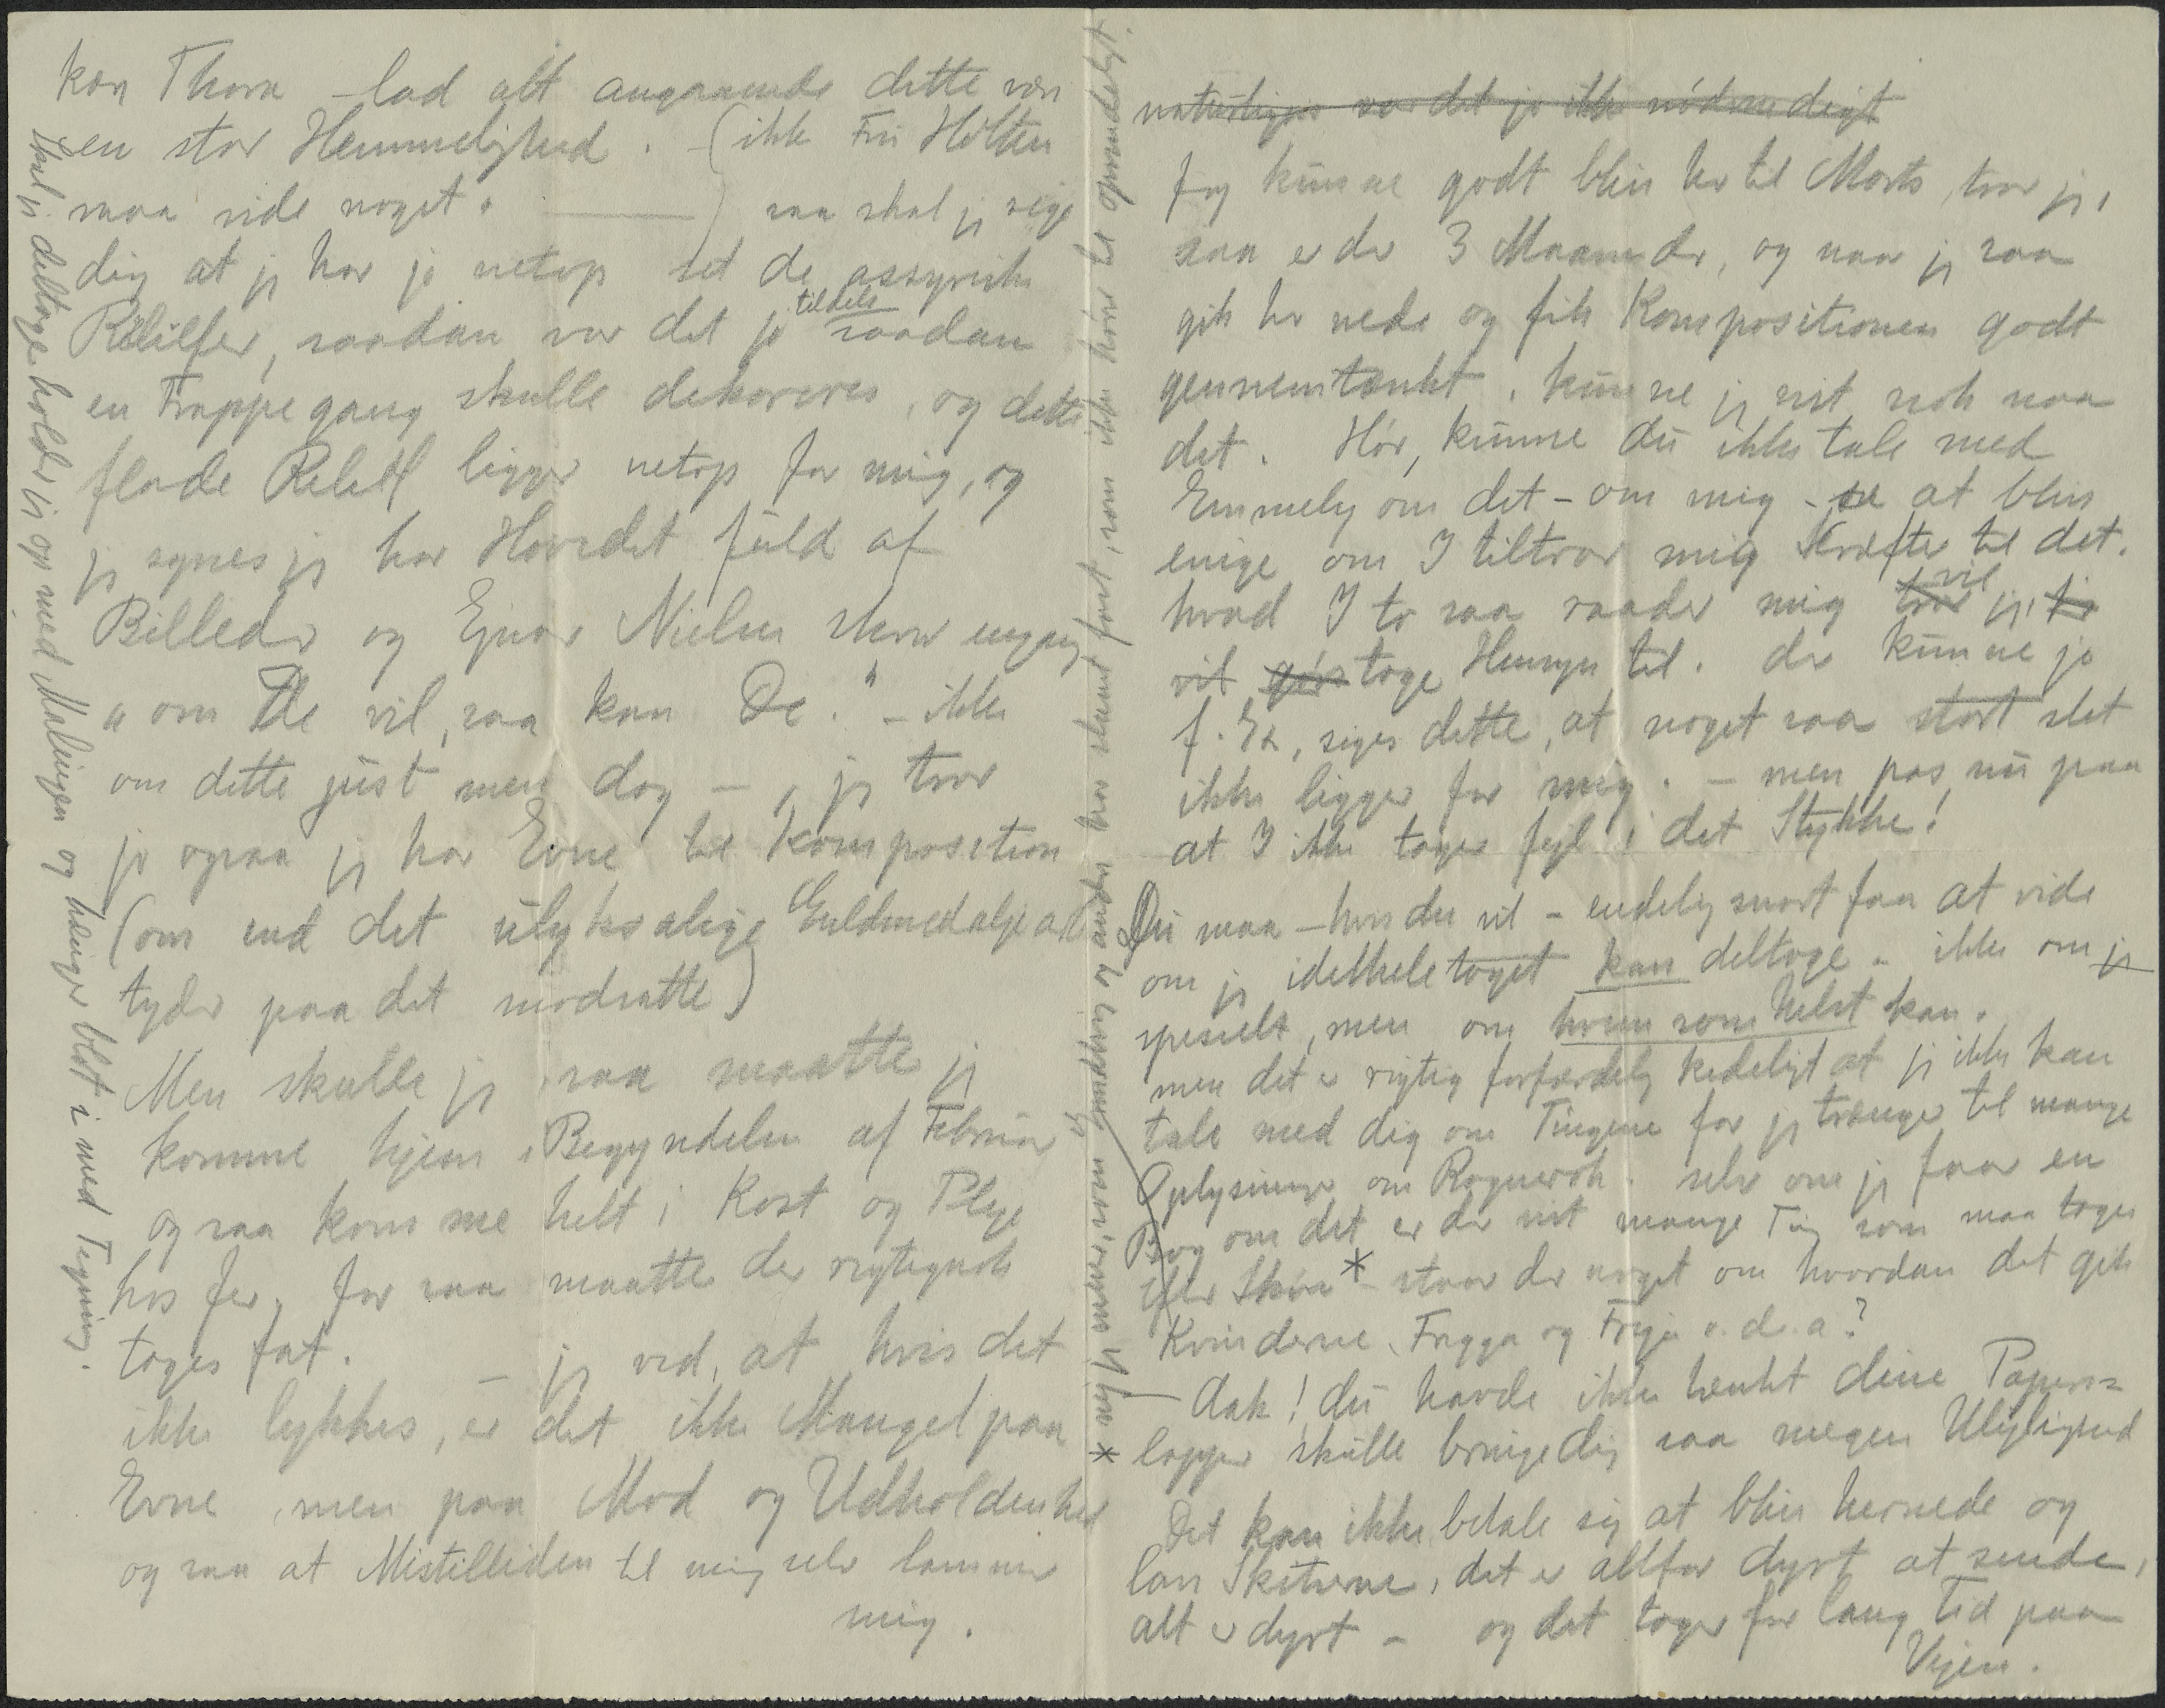 kær Thora – lad alt angaaende dette vær
en stor Hemmelighed. – (ikke Frü Holten
maa vide noget. ———) saa skal jeg sige
dig at jeg har jo netop set de assyriske
Reliefer, saadan var det jo tildels saadan
en Trappegang skulle dekoreres, og dette
flade Relief ligger netop for mig, og
jeg synes jeg har Hovedet füld af
Billeder og Ejnar Nielsen skrev engang
"om De vil, saa kan De." – ikke
om dette jüst men dog – , jeg tror
jo ogsaa jeg har Evne til Komposition
(om end det ülyksalige Guldmedalje
tyder paa det modsatte)
Men skulle jeg, saa maatte jeg
komme hjem i Begyndelsen af Februar
og saa komme helt i Kost og Pleje
hos jer, for saa maatte der rigtignok
tages fat. – jeg ved, at hvis det
ikke lykkes, er det ikke Mangel paa
Evne, men paa Mod og Udholdenhed
og saa at Mistilliden til mig selv lammer
mig.
Skal vi deltage, holder vi op med Malingen og hænger blot i med Tegning.
naturligvis var det jo ikke nödvendigt
Jeg künne godt bliv her til Marts, tror jeg,
saa er der 3 Maaneder, og naar jeg saa
gik her nede og fik Kompositionen godt
gennemtænkt, künne jeg vist nok naa
det. Hör, künne dü ikke tale med
Emmely om det – om mig – se at bliv
enige om I tiltror mig Kræfter til det.
hvad I to saa raader mig tror vil jeg, jo
vil göre tage Hensyn til. der künne jo
f. Ex, siges dette, at noget saa stort slet
ikke ligger for mig. – men pas nü paa
at I ikke tager fejl i det Stykke!
Dü maa – hvis du vil – endelig snart faa at vide
om jeg idethele taget kan deltage. ikke om jeg
specielt, men om hvem som helst kan.
men det er rigtig forfærdelig kedeligt at jeg ikke kan
tale med dig om Tingene for jeg trænger til mange
Oplysninger om Ragnerok. selv om jeg faar en
Bog om det er der vist mange Ting som maa tages
efter Skön * – staar der noget om hvordan det gik
Kvinderne, Frigga og Freja o.d.a?
– Aak! dü havde ikke tænkt dine Papirs=
lapper skülle bringe dig saa megen Ulejlighed
Det kan ikke betale sig at bliv hernede og
lav Skitserne, det er altfor dyrt at sende,
alt er dyrt – og det tager for lang Tid paa
Vejen.
* nej jeg mener, som og andre har skrevet først, som ikke hører til oprindeligt.